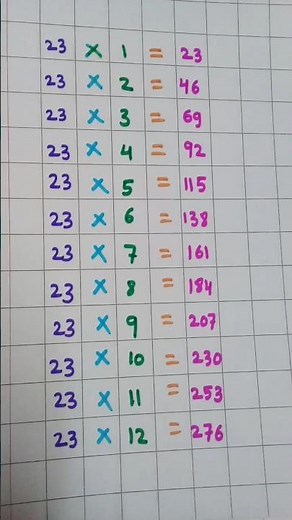 23 × 1 = 23
23 × 2 = 46
23 × 3 = 69
23 × 4 = 92
23 × 5 = 115
23 × 6 = 138
23 × 7 = 161
23 × 8 = 184
23 × 9 = 207
23 × 10 = 230
23 × 11 = 253
23 × 12 = 276